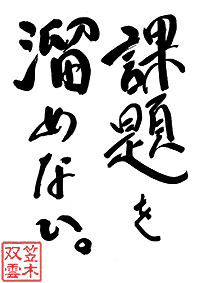 課題を
溜めない。
笠木
双雲